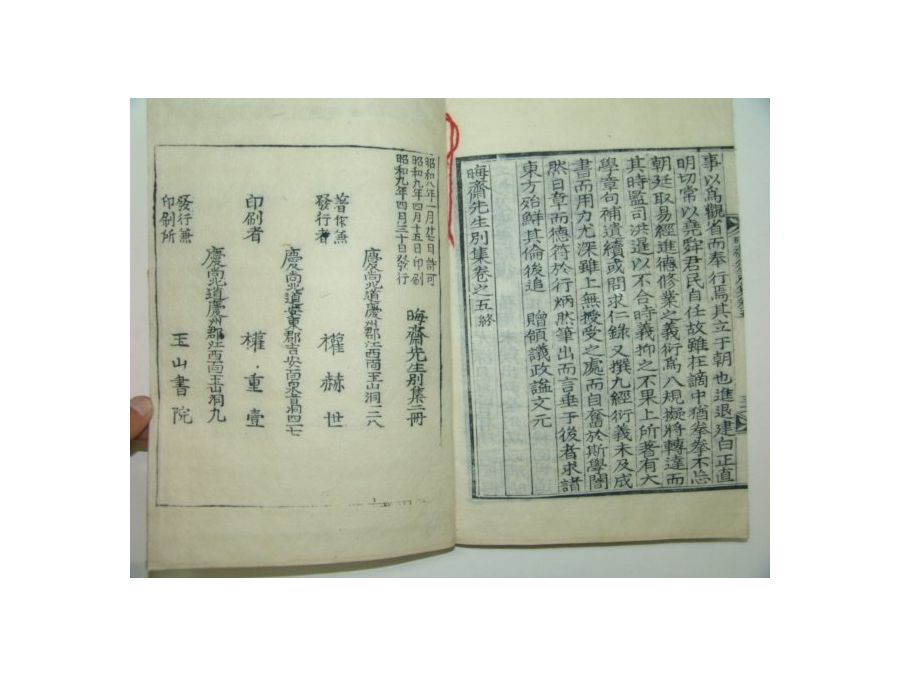 事以爲觀省而奉 行焉其立于朝也進退建白正直
明切常以堯舜君民自任故雖在謫中猶拳拳不忘
朝廷取易經進德修業之義衍爲八規擬將轉達而
其時監司洪暹以不合時義抑之不果上所著有大
學章句補遺續或問求仁錄又撰九經衍義未及成
書而用力尤深雖上無授受之處而自奮於斯學闇
然日章而德符於行炳然筆出而言垂于後者求諸
東方殆鮮其倫後追 贈領議政謚文元
晦齋先生別集卷之五終
昭和八年一月廿七日許可
昭和九年四月十五日印刷
昭和九年四月三十日發行
晦齋先生別集二冊
慶尙北道慶州郡江西面玉山洞一二八
著作兼
發行者 權赫世
慶尙北道安東郡吉安面泉旨洞四一七
印刷者 權重壹
慶尙北道慶州郡江西面玉山洞九
發行兼
印刷所 玉山書院